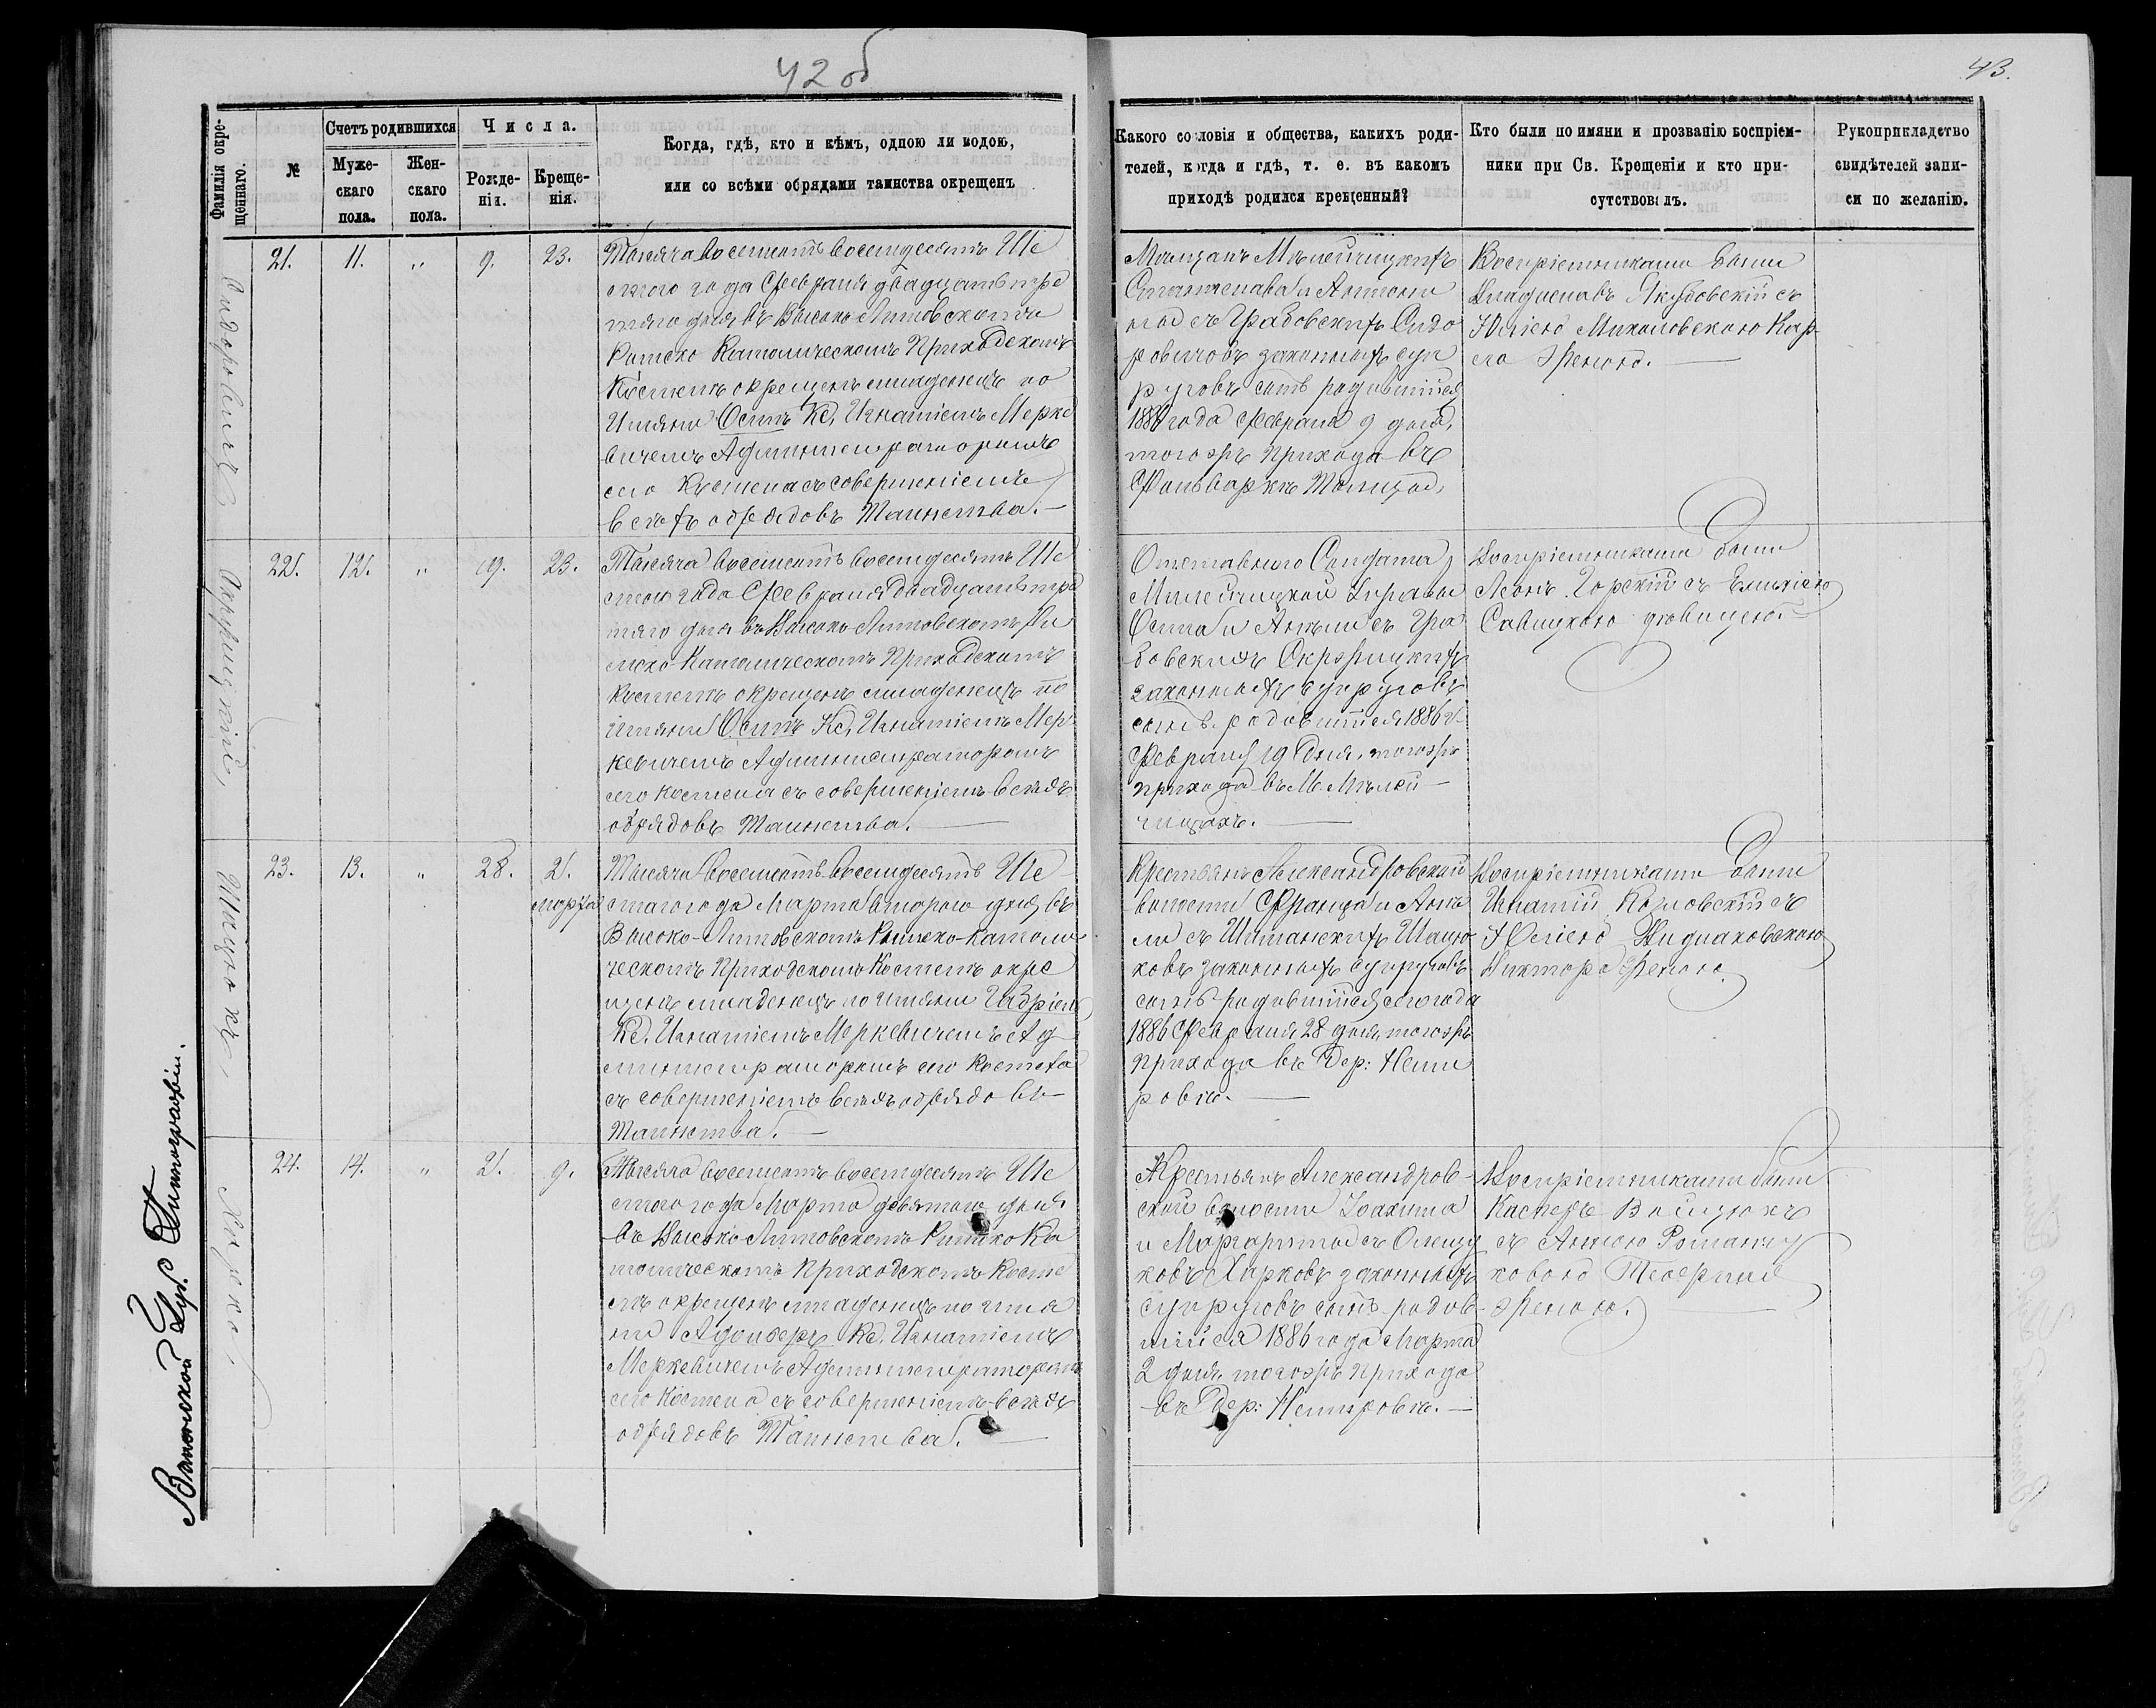 42 об
43.
Фамилія окре-
щеннаго.
№
Счетъ родившихся
Муже-
скаго
пола.
Жен-
скаго
пола.
Числа.
Рожде-
нія.
Креще-
нія.
Когда, гдѣ, кто и кѣмъ, одною ли водою,
или со всѣми обрядами таинства окрещенъ
Какого сословія и общества, какихъ роди-
телей, когда и гдѣ, т. е. въ какомъ
приходѣ родился крещенный?
Кто были по имяни и прозванію воспріем-
ники при Св. Крещеніи и кто при-
сутствовалъ.
Рукоприкладство
свидѣтелей запи-
си по желанію.
Сидоровичъ
21.
11.
"
9.
23.
Тысяча восемьсотъ восемдесятъ Ше
стого года Февраля двадцать тре
тяго дня въ Высоко-Литовскомъ
Римско Католическомъ Приходскомъ
Костелѣ окрещенъ младенецъ по
Имяни Осипъ Кс, Игнатіемъ Мерке
вичемъ Администраторомъ
сего Костела съ совершеніемъ
всѣхъ обрядовъ Таинства.
Мѣщанъ Милейчицкихъ
Станислава и Антони
ны съ Грабовскихъ Сидо
ровичовъ законныхъ суп
руговъ сынъ родившійся
1886 года Февраля 9 дня,
тогожъ прихода въ
Фольваркѣ
Воспріемниками были
Владиславъ Якубовскій съ
Юліею Михаловскою Кар-
ла Женою.
Скржицкій,
22.
12.
"
19.
23.
Тысяча восемьсотъ восемдесятъ Ше
стого года Февраля двадцать тре
тяго дня въ Высоко-Литовскомъ Ри
мско-Католическомъ Приходскомъ
Костелѣ окрещенъ младенецъ по
Имяни Осипъ Кс, Игнатіемъ Мер-
кевичемъ Администраторомъ
сего костела съ совершеніемъ всѣхъ
обрядовъ Таинства.
Отставного Солдата
Милейчицкой Управы
Осипа и Анны съ Гра
бовскихъ Скржицкихъ
законныхъ супруговъ
сынъ родившійся 1886 г.
Февраля 19 Дня, тогожъ
прихода въ М. Милей-
чицахъ.
Воспріемниками были
Леонъ Горскій съ Емиліею
Савицкою дѣвицею.
Шацюкъ
23.
13.
"
28.
2.
марта
Тысяча восемьсотъ восемдесятъ Ше
стаго года Марта второго дня въ
Высоко-Литовскомъ Римско-Католи-
ческомъ Приходскомъ Костелѣ окре
щенъ младенецъ по имяни Габріель
Кс. Игнатіемъ Меркевичемъ Ад
министраторомъ сего Костела
съ совершеніемъ всѣхъ обрядовъ
Таинства.
Крестьянъ Александровской
волости Франца и Анѣ
ли съ Шиманскихъ Шацю
ковъ законныхъ супруговъ
сынъ родившійся сего года
1886 Февраля 28 дня, тогожъ
прихода въ Дер: Неми
ровкѣ.
Воспріемниками были
Игнатій Козловскій съ
Юліею
Виктора Женою.
24.
14.
"
2.
9.
Тысяча восемьсотъ восемдесятъ Ше
стого года Марта девятого дня
въ Высоко-Литовскомъ Римско Ка
толическомъ Приходскомъ Косте
лѣ окрещенъ младенецъ по имя
ни Адольберъ Кс. Игнатіемъ
Меркевичемъ Администраторомъ
сего Костела съ совершеніемъ всѣхъ
обрядовъ Таинства.
Крестьянъ Александров-
ской волости Іоахима
и Маргариты съ Олещу
ковъ законныхъ
супруговъ сынъ родив-
шійся 1886 года Марта
2 дня, тогожъ прихода
въ Дер: Немировкѣ.
Воспріемниками были
Касперъ Войцюкъ
съ Анною Романю
ковою
Женою.
Виленской Губ. Типографіи.